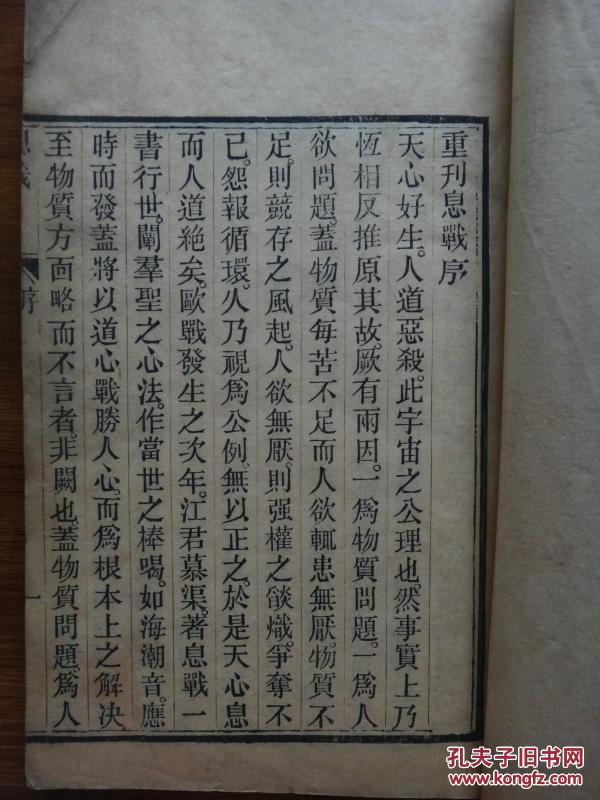 重刊息戰序
天心好生。人道惡殺。此宇宙之公理也。然事實上乃
恆相反推原其故。厥有兩因。一爲物質問題。一爲人
欲問題。蓋物質每苦不足而人欲輒患無厭。物質不
足。則競存之風起。人欲無厭。則强權之燄熾。爭奪不
已。怨報循環。人乃視爲公例。無以正之。於是天心息
而人道絶矣。歐戰發生之次年。江君慕渠。著息戰一
書行世。闡羣聖之心法。作當世之棒喝。如海潮音。應
時而發蓋將以道心戰勝人心。而爲根本上之解決
至物質方面略而不言者。非闕也。蓋物質問題。爲人
息戰
序
一
孔夫子旧书网
www.kongfz.com